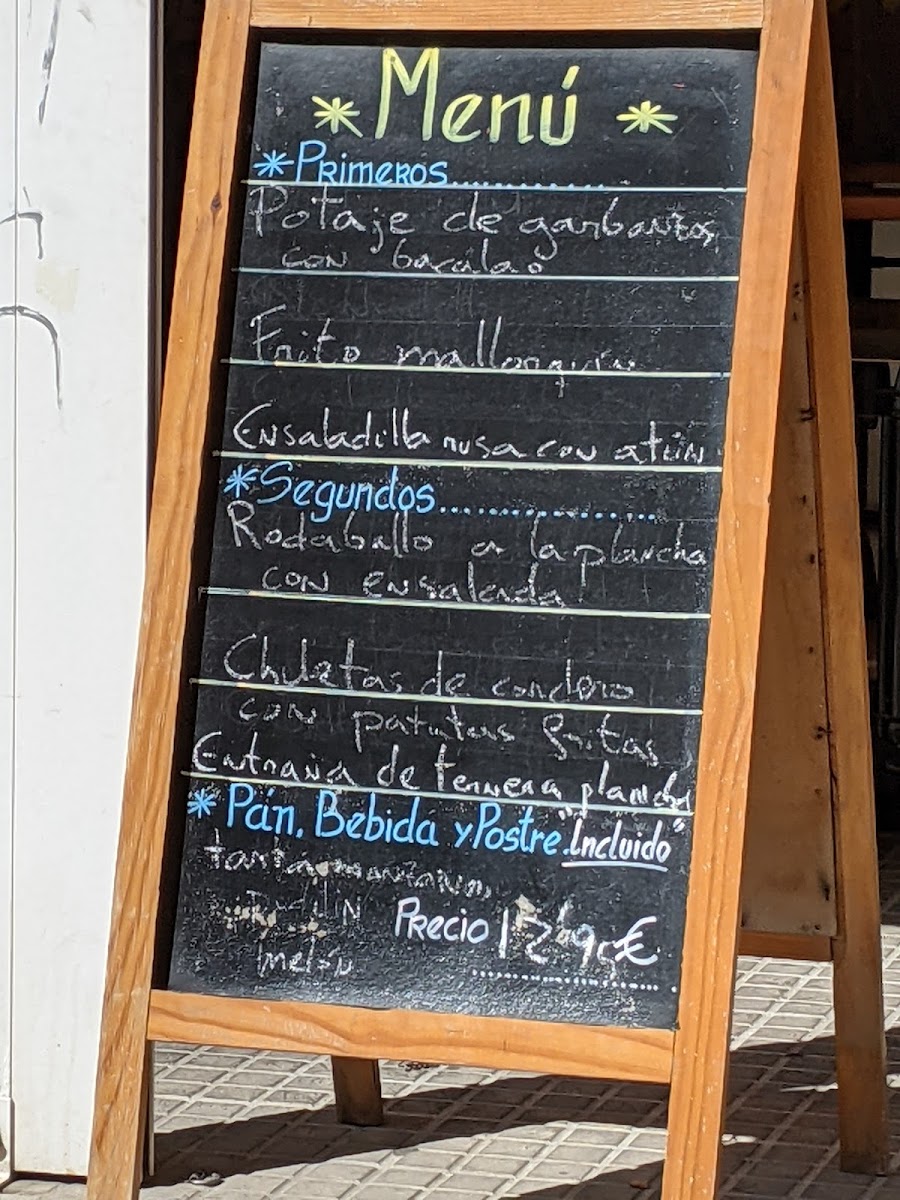 * Menú *
* Primeros..............
Potaje de garbanzos
con bacalao
Frito mallorquín
Ensaladilla rusa con atún
* Segundos..................
Rodaballo a la plancha
con ensalada
Chuletas de cordero
con patatas fritas
Entraña de ternera plancha
* Pan, Bebida y Postre "Incluido"
tarta manzana
Precio 12'95€
melón